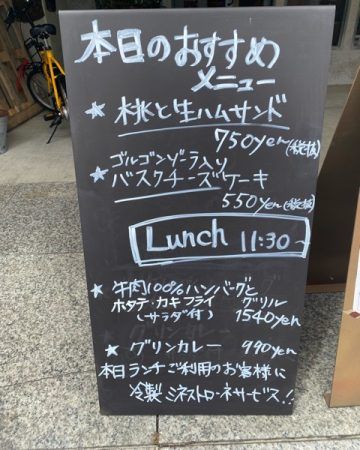 本日のおすすめ
メニュー
★ 桃と生ハムサンド
750yen(税抜)
★ ゴルゴンゾーラ入り
バスクチーズケーキ
550yen(税抜)
Lunch 11:30-
★ 牛肉100%ハンバーグと
ホタテ・カキフライ グリル
(サラダ付) 1540yen
★ グリンカレー 990yen
本日ランチご利用のお客様に
冷製ミネストローネサービス!!